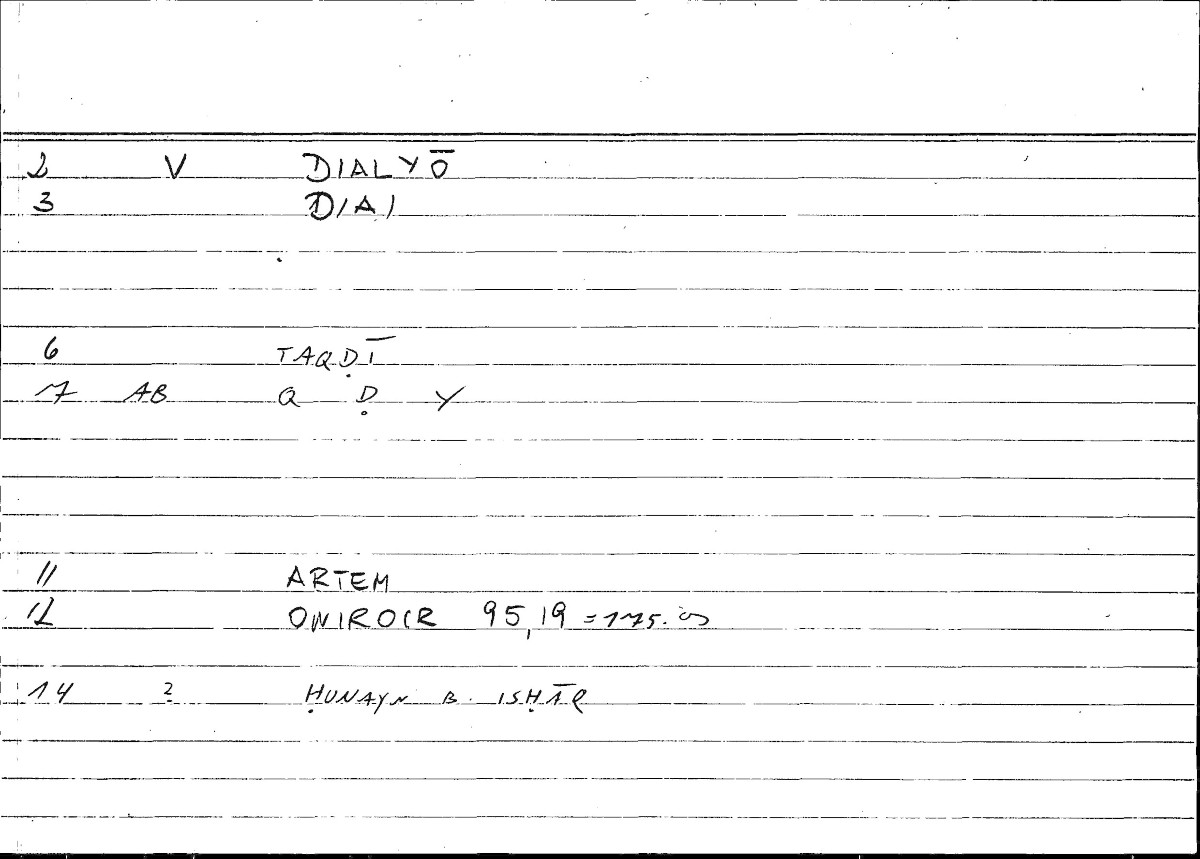 2 V DIALYŌ
3 DIAI
6 TAQḌĪ
7 AB Q Ḍ Y
11 ARTEM
12 ONIROCR 95,19 =175.
14 ? ḤUNAYN B. ISḤĀQ